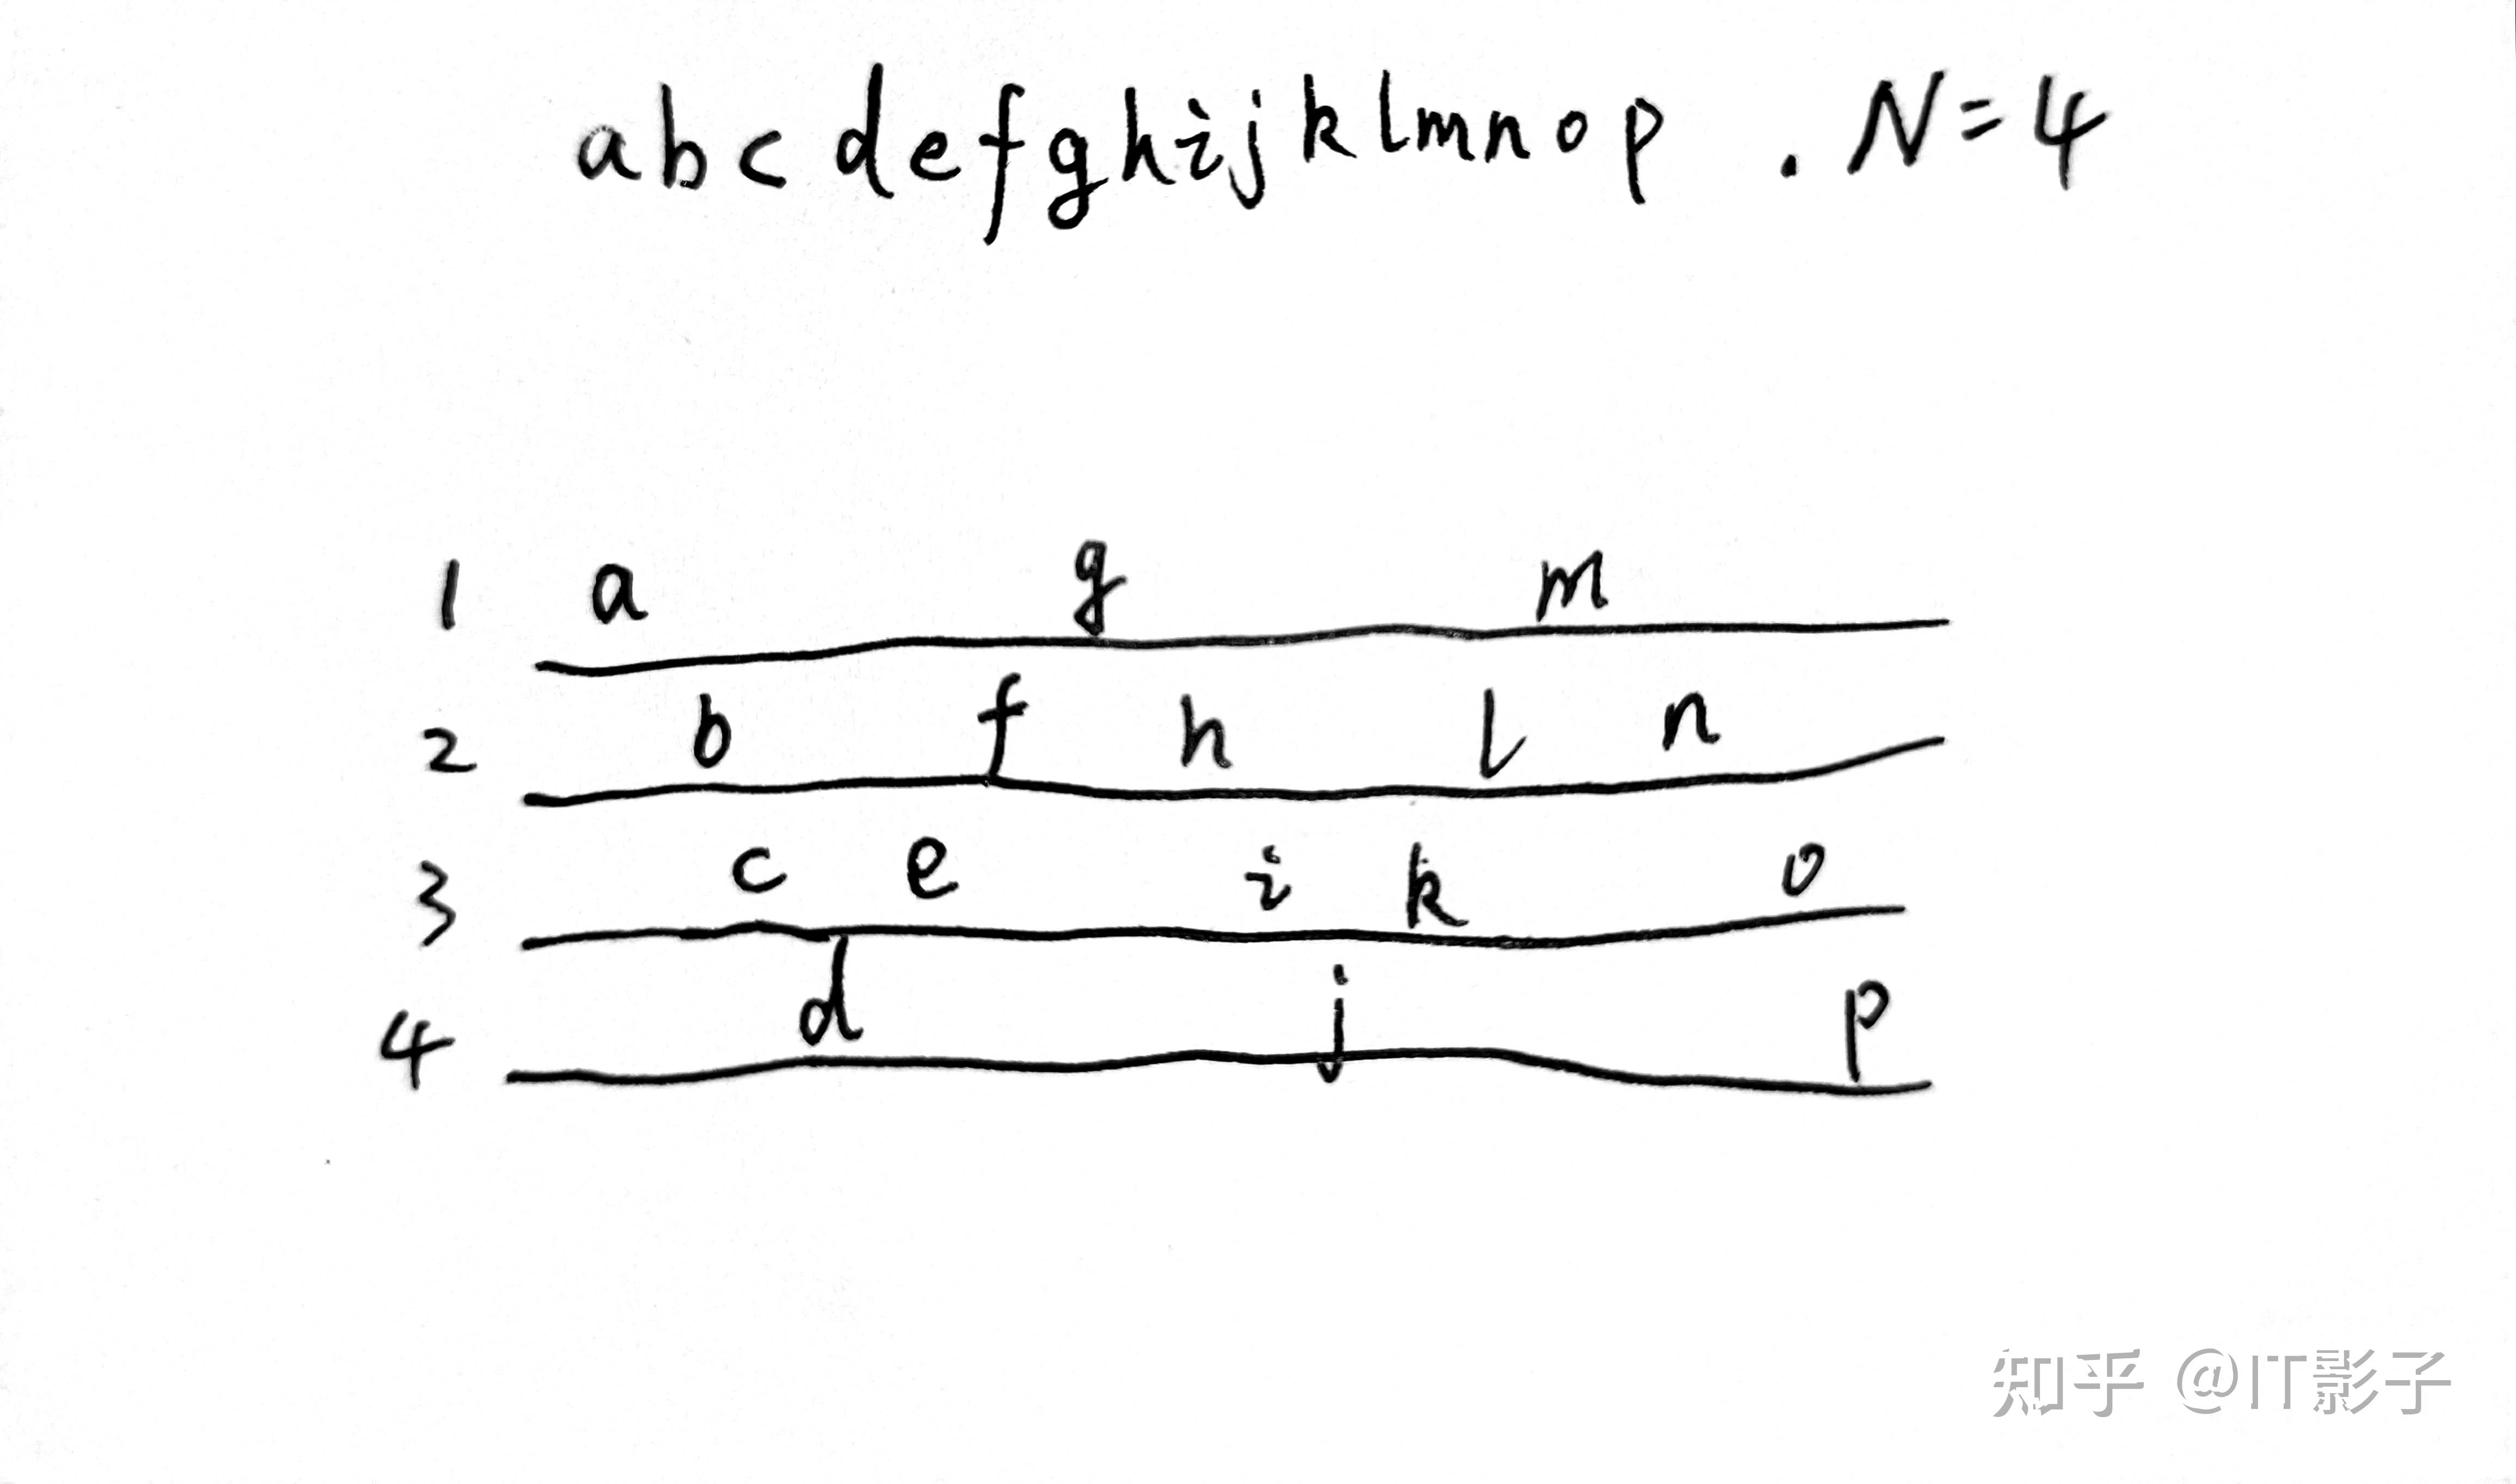 abcdefghijklmnop . N=4
1 a g m
2 b f h l n
3 c e i k o
4 d j p
知乎 @IT影子